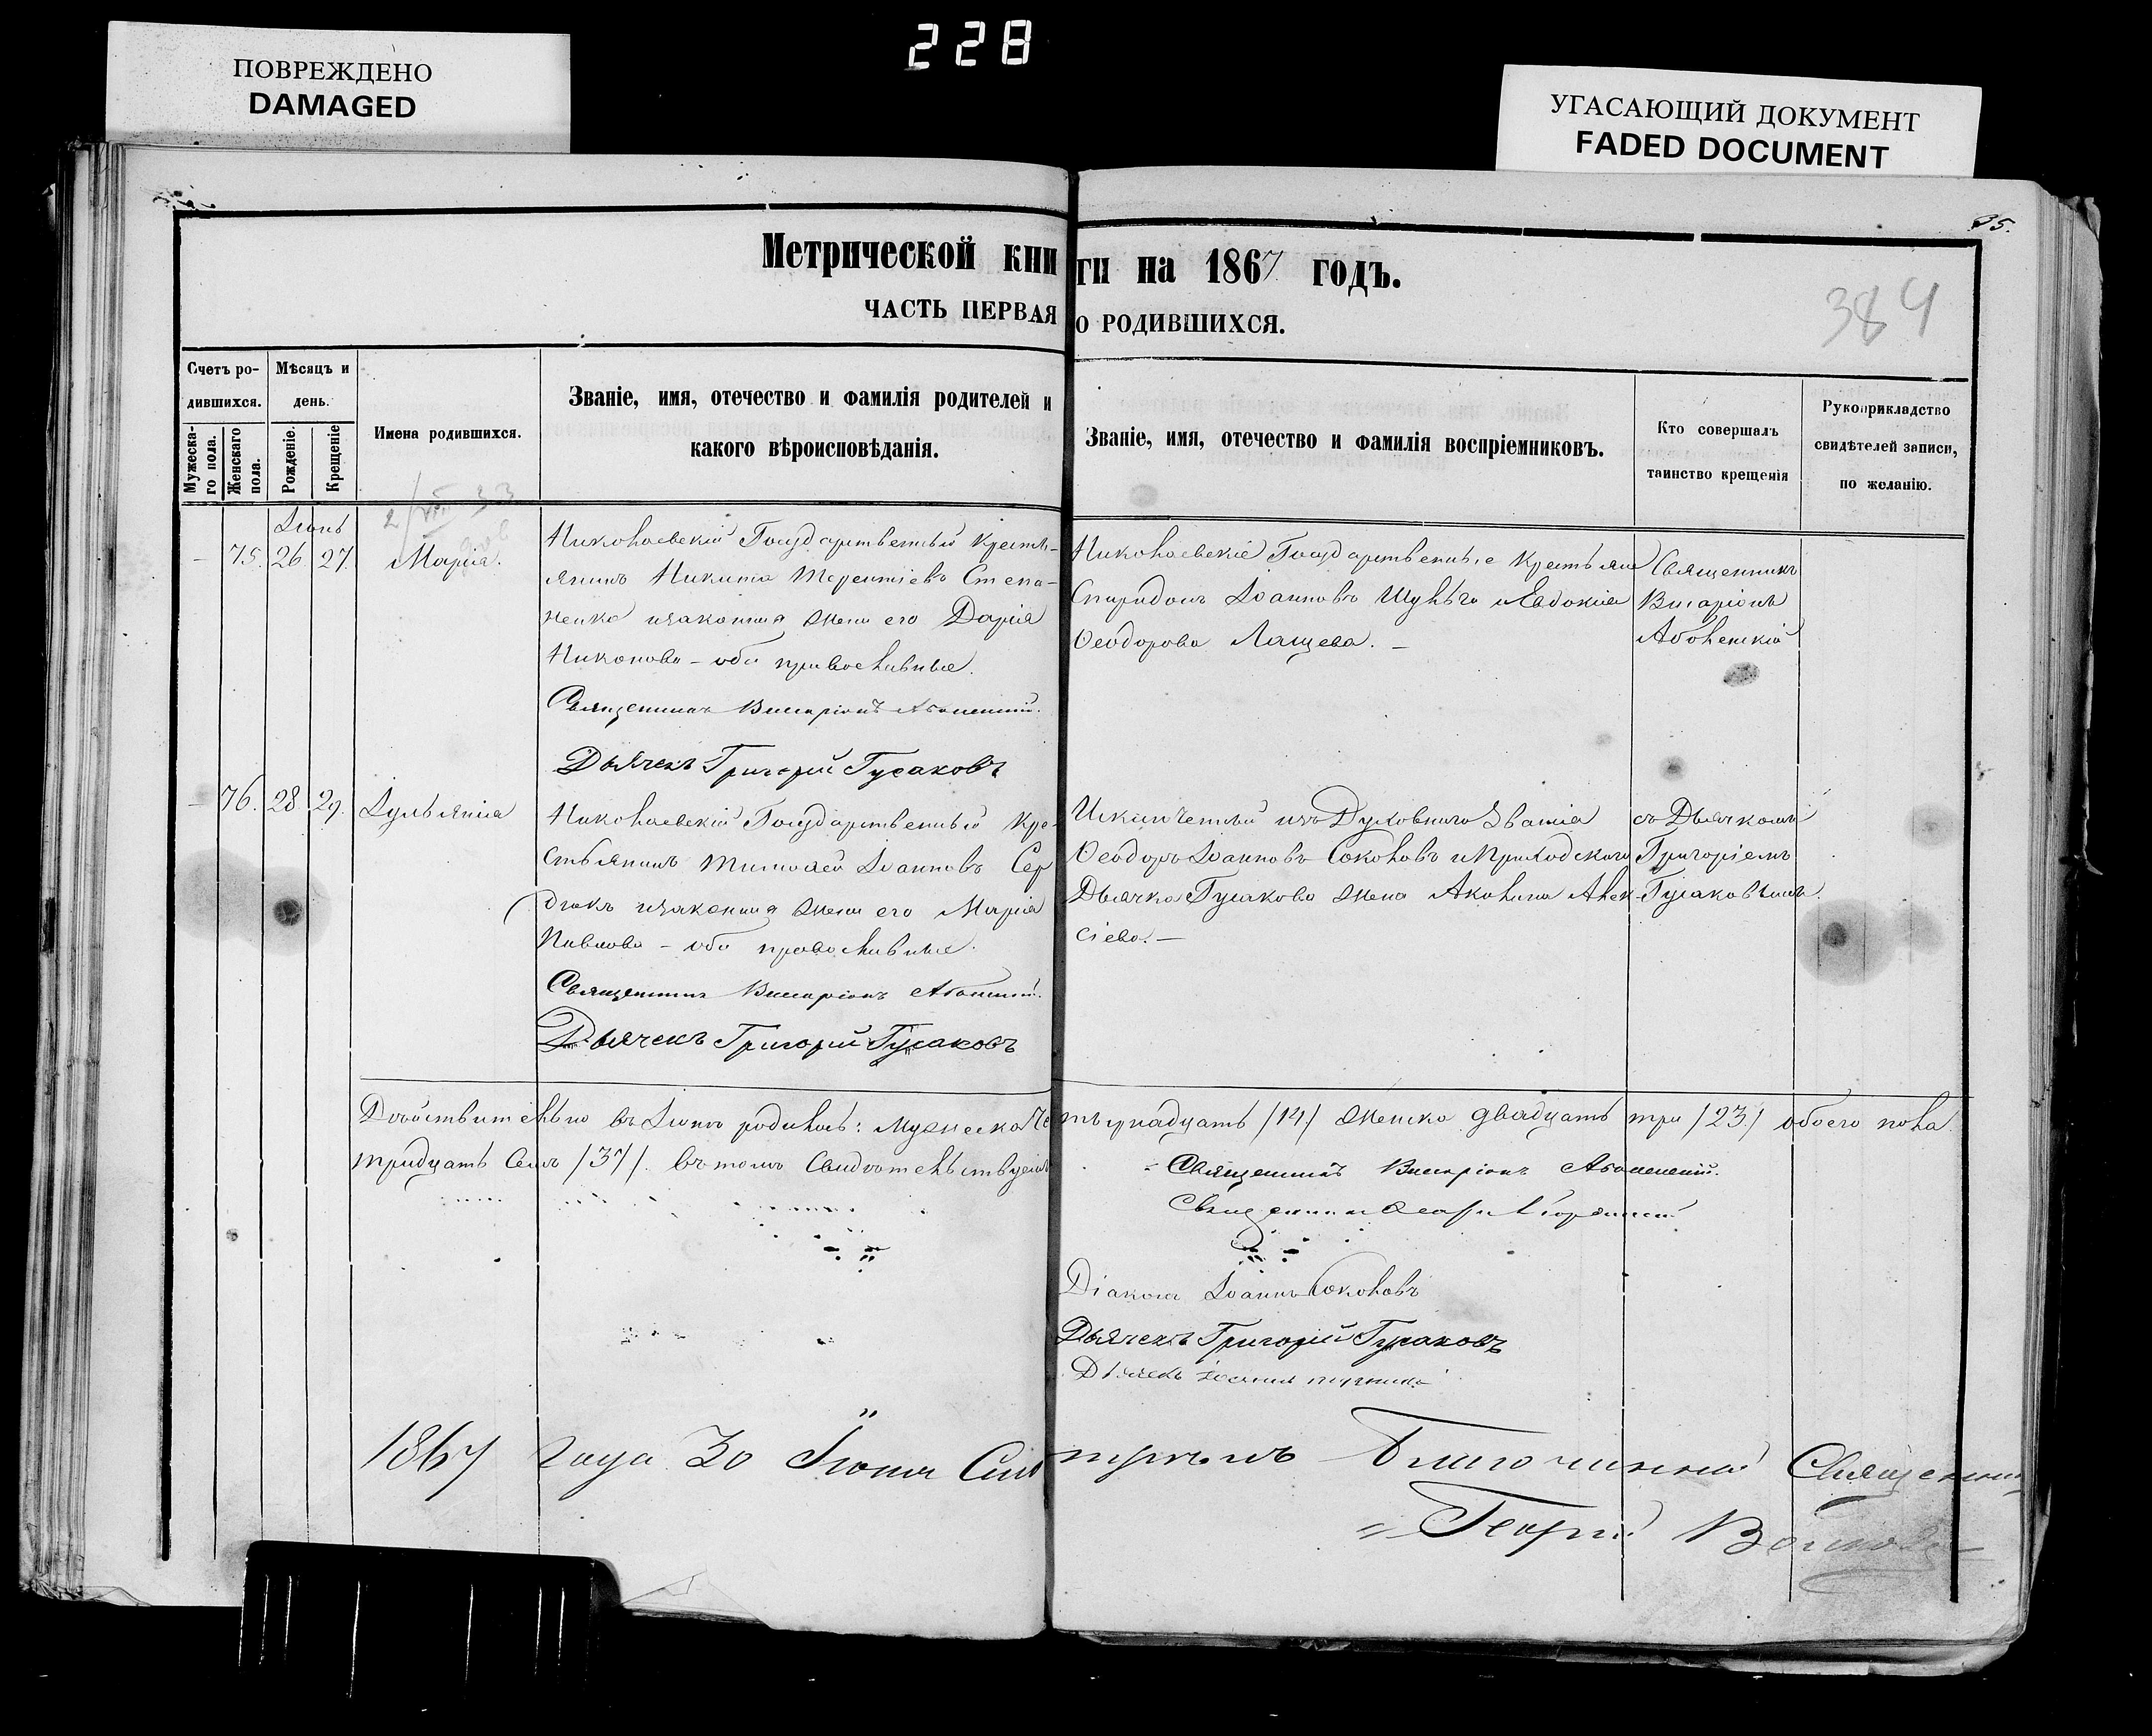 228
ПОВРЕЖДЕНО
DAMAGED
УГАСАЮЩИЙ ДОКУМЕНТ
FADED DOCUMENT
35.
384
Метрической книги на 1867 годъ.
ЧАСТЬ ПЕРВАЯ О РОДИВШИХСЯ.
Счетъ родившихся.
Мужескаго пола.
Женскаго пола.
Мѣсяцъ и день.
Рожденіе.
Крещеніе
Имена родившихся.
Званіе, имя, отечество и фамилія родителей и
какого вѣроисповѣданія.
Званіе, имя, отечество и фамилія воспріемниковъ.
Кто совершалъ
таинство крещенія
Рукоприкладство
свидѣтелей записи,
по желанію.
Іюнь
75. 26. 27. Марія.
Николаевскій Государственный крестья-
янинъ Никита Терентіевъ Степа-
ненко изаконная жена его Дарія
Никонова - оба православные.
Священникъ Висаріонъ
Дьячекъ Григорій Гусаковъ
Николаевскіе Государственные крестьяне
Спиридонъ Іоанновъ Шульга и Евдокія
Ѳеодорова Лащева. -
Священникъ
Висаріонъ
76. 28. 29. Іульянія
Николаевскій Государственный кре-
стьянинъ Тимоѳей Іоанновъ Сер
дюкъ изаконная жена его Марія
Павлова - оба православные.
Священникъ Висаріонъ
Дьячекъ Григорій Гусаковъ
Исключенный изъ Духовнаго Званія
Ѳеодоръ Іоанновъ Соколовъ и Приходскаго
Дьячка Гусакова жена Акилина Алек
сіева. -
съ Дьячкомъ
Григоріемъ
Гусаковымъ.
Дѣйствительно въ Іюнѣ родилось: мужеска четырнадцать /14/ женска двадцать три /23/ обоего пола
тридцать семь /37/. въ томъ Свидѣтельствуемъ
Священникъ Висаріонъ
Священникъ
Діаконъ Іоаннъ Соколовъ
Дьячекъ Григорій Гусаковъ
Дьячекъ
1867 года 30 Іюня Смотрѣлъ Благочинный Священникъ
Георгій